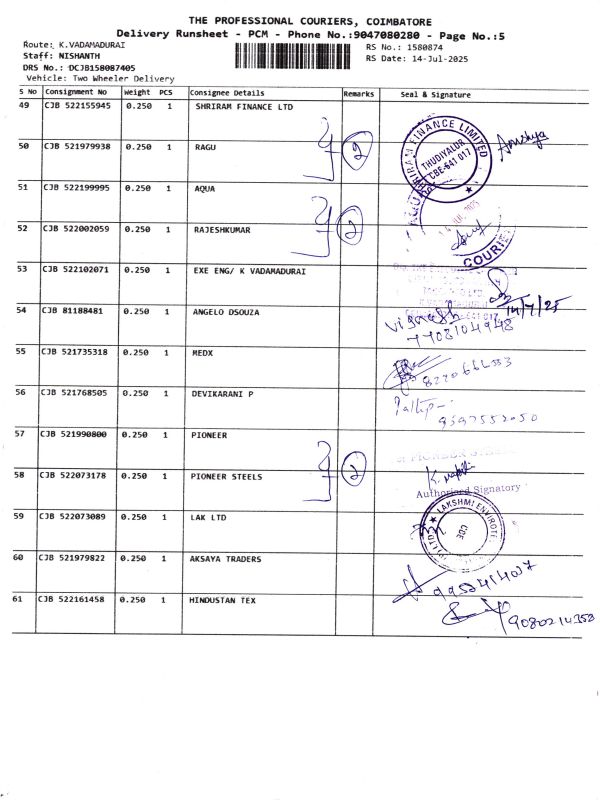 THE PROFESSIONAL COURIERS, COIMBATORE
Delivery Runsheet - PCM - Phone No.:9047080280 - Page No.:5
Route: K.VADAMADURAI
RS No.: 1580874
Staff: NISHANTH
RS Date: 14-Jul-2025
DRS No.: DCJB158087405
Vehicle: Two Wheeler Delivery
S No Consignment No Weight PCS Consignee Details Remarks Seal & Signature
49 CJB 522155945 0.250 1 SHRIRAM FINANCE LTD
SHRIRAM FINANCE LIMITED
THUDIYALUR
CBE-641 017
50 CJB 521979938 0.250 1 RAGU
2
51 CJB 522199995 0.250 1 AQUA
52 CJB 522002059 0.250 1 RAJESHKUMAR
2
COURIER
53 CJB 522102071 0.250 1 EXE ENG/ K VADAMADURAI
14/7/25
54 CJB 81188481 0.250 1 ANGELO DSOUZA
Vignesh
7708104948
55 CJB 521735318 0.250 1 MEDX
56 CJB 521768505 0.250 1 DEVIKARANI P
9597552050
57 CJB 521990800 0.250 1 PIONEER
2
58 CJB 522073178 0.250 1 PIONEER STEELS
Authorised Signatory
59 CJB 522073089 0.250 1 LAK LTD
LAKSHMI ENVIROTE
60 CJB 521979822 0.250 1 AKSAYA TRADERS
9952414027
61 CJB 522161458 0.250 1 HINDUSTAN TEX
9080214358